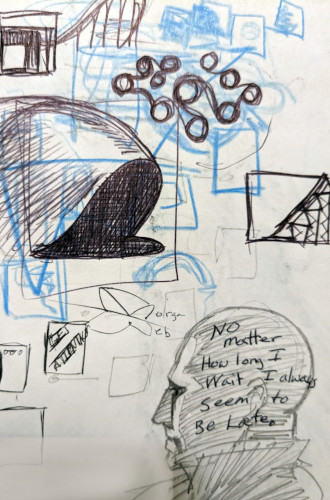 orga
eb
No
matter
How long I
Wait I always
Seem to
Be Late.